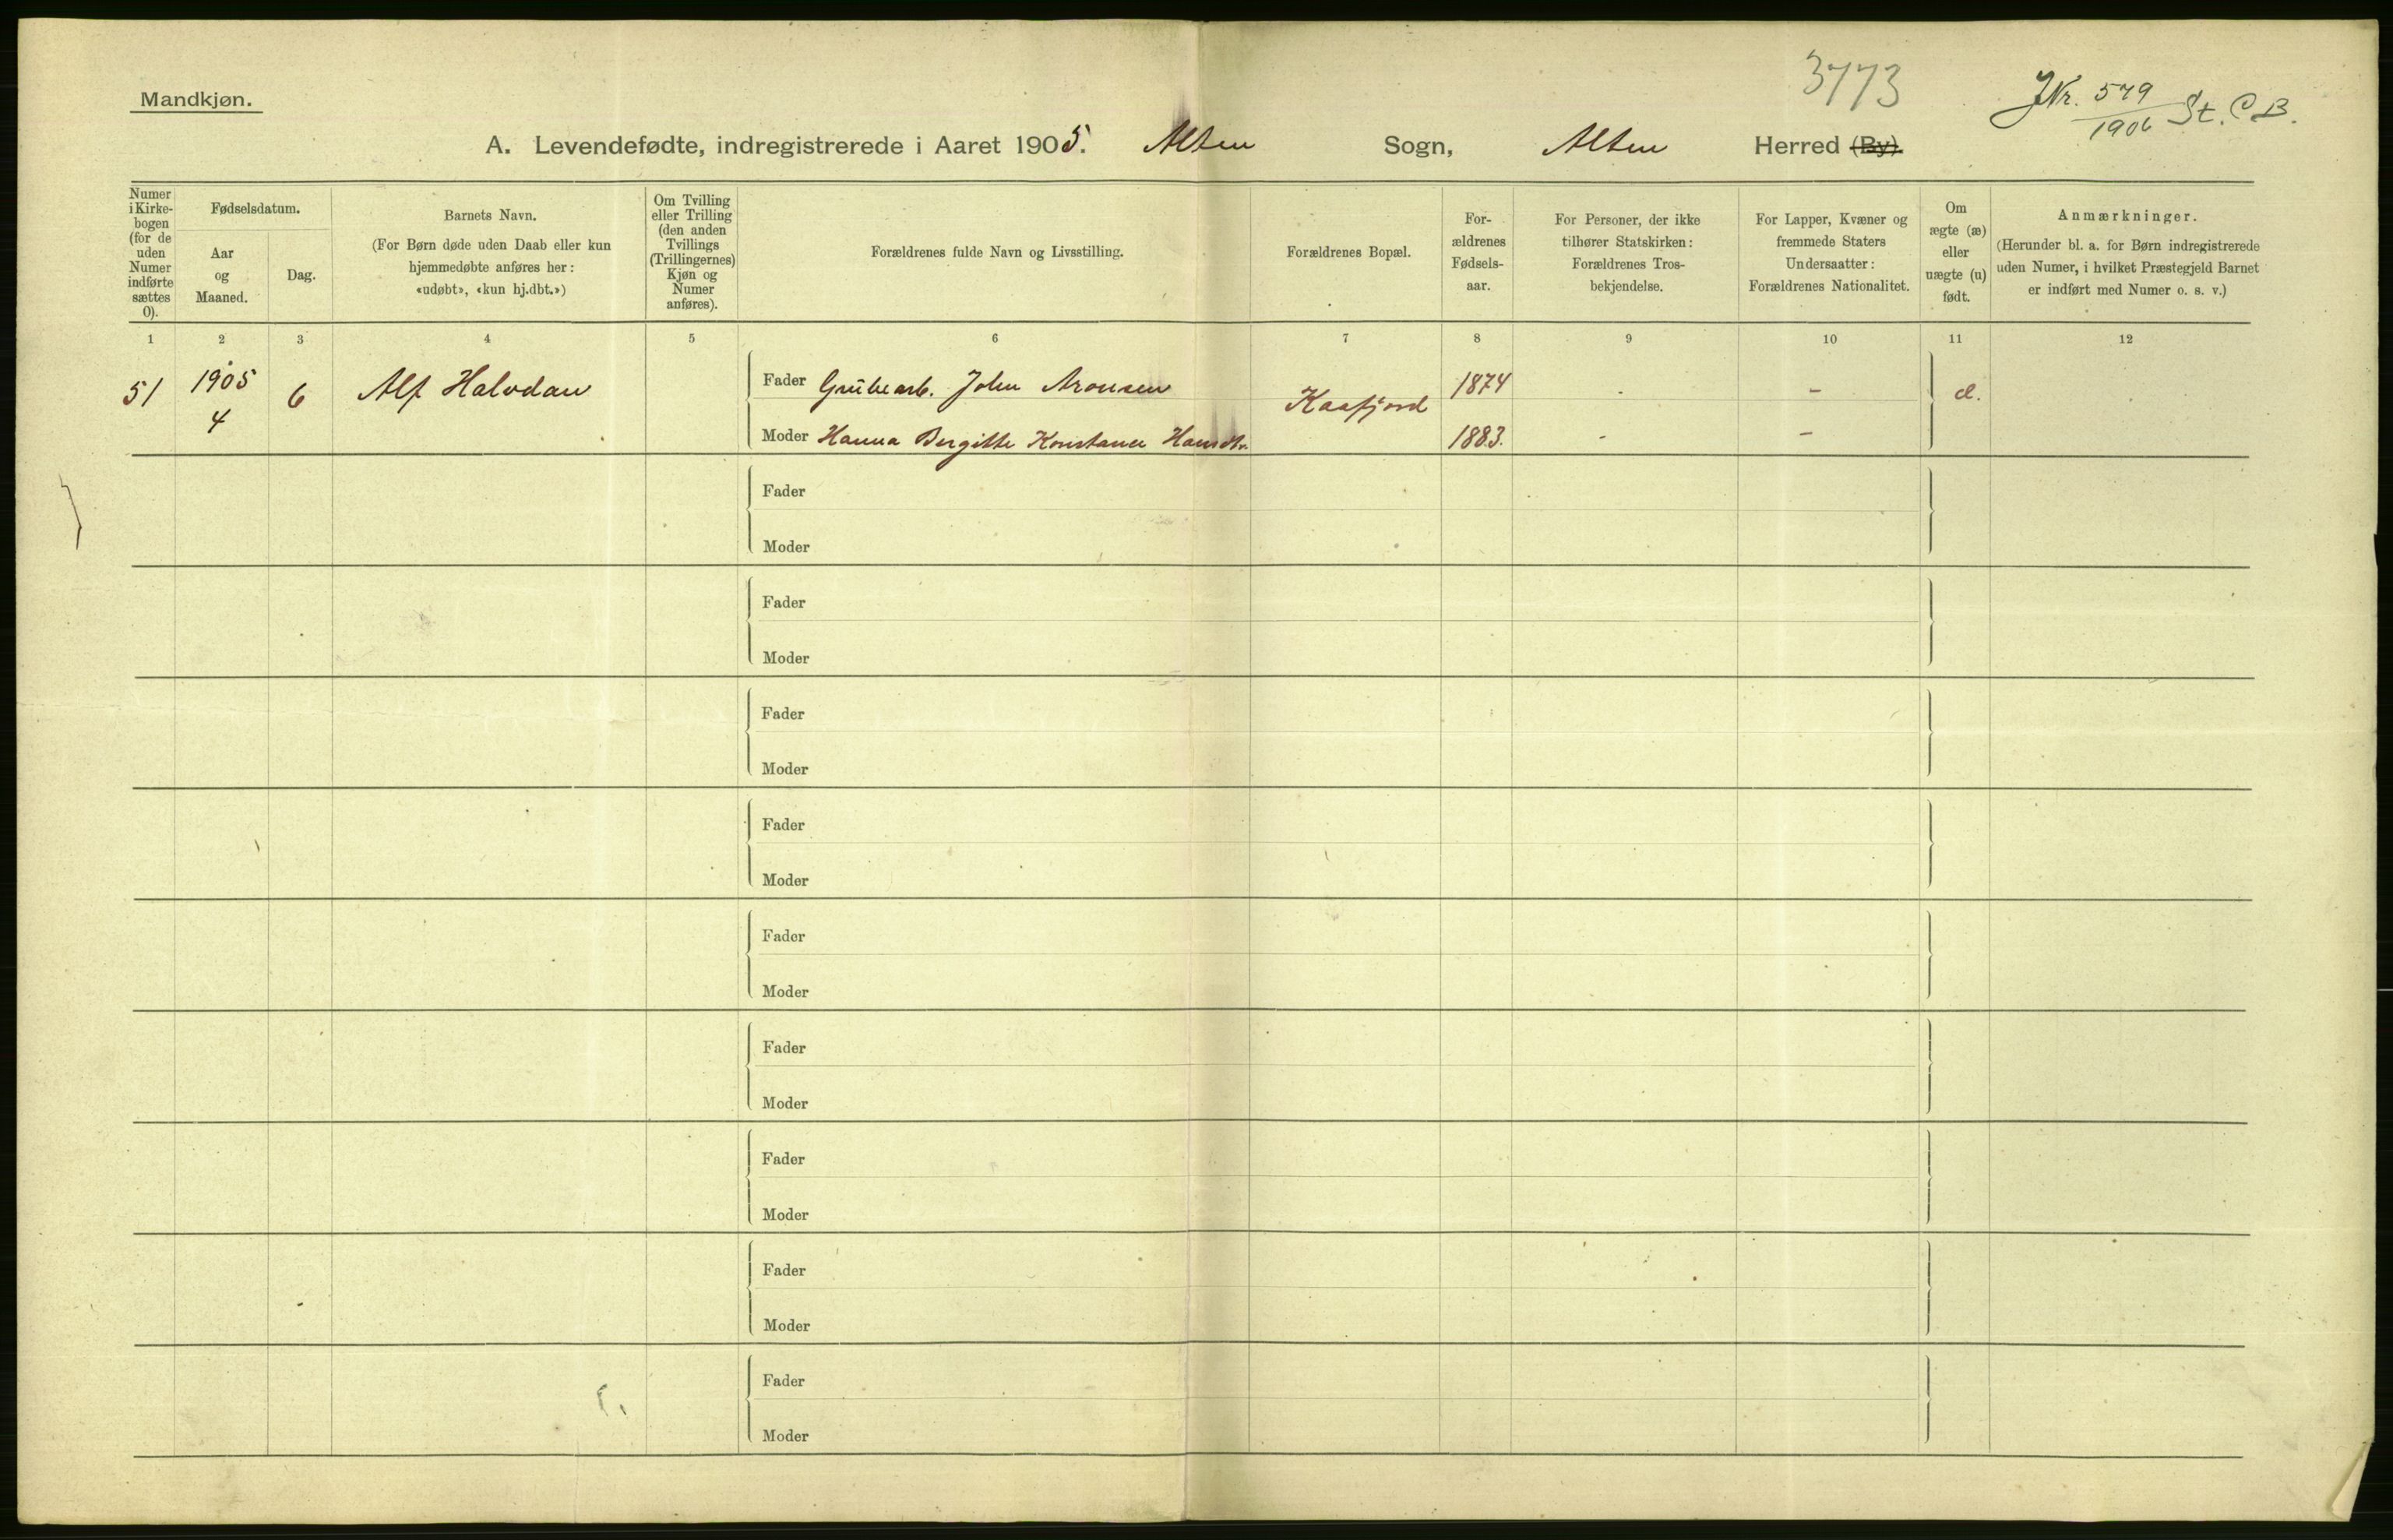 Mandkjøn.
3773
JNr. 579/1906 St. C. B.
A. Levendefødte, indregistrerede i Aaret 1905. Alten Sogn, Alten Herred (By).
Numer i Kirke-bogen (for de uden Numer indførte sættes 0).
Fødselsdatum.
Aar og Maaned.
Dag.
Barnets Navn.
(For Børn døde uden Daab eller kun
hjemmedøbte anføres her:
«udøbt», «kun hj.dbt.»)
Om Tvilling
eller Trilling
(den anden
Tvillings
(Trillingernes)
Kjøn og
Numer
anføres).
Forældrenes fulde Navn og Livsstilling.
Forældrenes Bopæl.
For-
ældrenes
Fødsels-
aar.
For Personer, der ikke
tilhører Statskirken:
Forældrenes Tros-
bekjendelse.
For Lapper, Kvæner og
fremmede Staters
Undersaatter:
Forældrenes Nationalitet.
Om
ægte (æ)
eller
uægte (u)
født.
Anmærkninger.
(Herunder bl. a. for Børn indregistrerede
uden Numer, i hvilket Præstegjeld Barnet
er indført med Numer o. s. v.)
1 2 3 4 5 6 7 8 9 10 11 12
51 1905 4 6 Alf Halvdan
Fader Grubearb. John Aronsen Kaafjord 1874 - - æ.
Moder Hanna Bergitte Konstance Hansdtr. 1883. - -
Fader
Moder
Fader
Moder
Fader
Moder
Fader
Moder
Fader
Moder
Fader
Moder
Fader
Moder
Fader
Moder
Fader
Moder